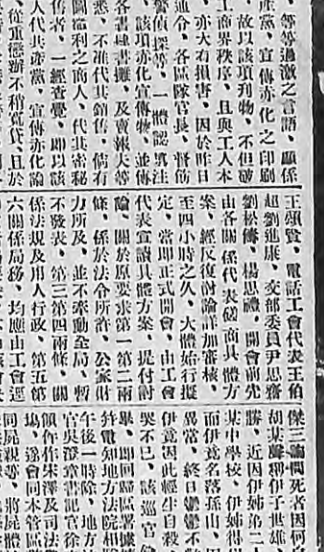 、等等過激之言語、顯係
產黨、宣傳赤化之印刷
、故以該項刋物、不但破
工商界秩序、且與工人本
、亦大有損害、因於昨日
通令、各區隊官長、督飭
警偵探等、一體認眞注
、該項赤化宣傳物、並傳
各書肆書攤、及賣報夫等
悉、不准代其銷售、倘有
圖漁利之商人、代其密秘
售者、一經查覺、即以該
人代共產黨、宣傳赤化論
、從重懲辦不稍寬貸、且於
王頌賢、電話工會代表王伯
超劉進康、交部委員尹思齋
劉松儔、楊思禮、開會前先
由各關係代表磋商具體方
案、經反復討論詳加審核、
至四小時之久、大體始行擬
定、當即正式開會、由工會
代表宣讀具體方案、提付討
論、關於原要求第一第二兩
條、係於法令所許、公家財
力所及、並不牽動全局、暫
不發表、第三第四兩條、關
係法規及用人行政、第五第
六關係局務、均應由工會逕
傑三論問死者因何自
胡某聲稱伊子世雄
勝、近因伊姊弟二
某中學校、伊姊得
而伊竟名落孫山、因
異常、終日鬱鬱不
伊竟因此輕生自殺
哭不已、該巡官
畢、即回歸區署據
幷電知地方法院相
午後一時除、地方
官吳澄章書記官徐
傾仵作朱澤及司法
塲、遂會同本管區
同屍親等、將屍體